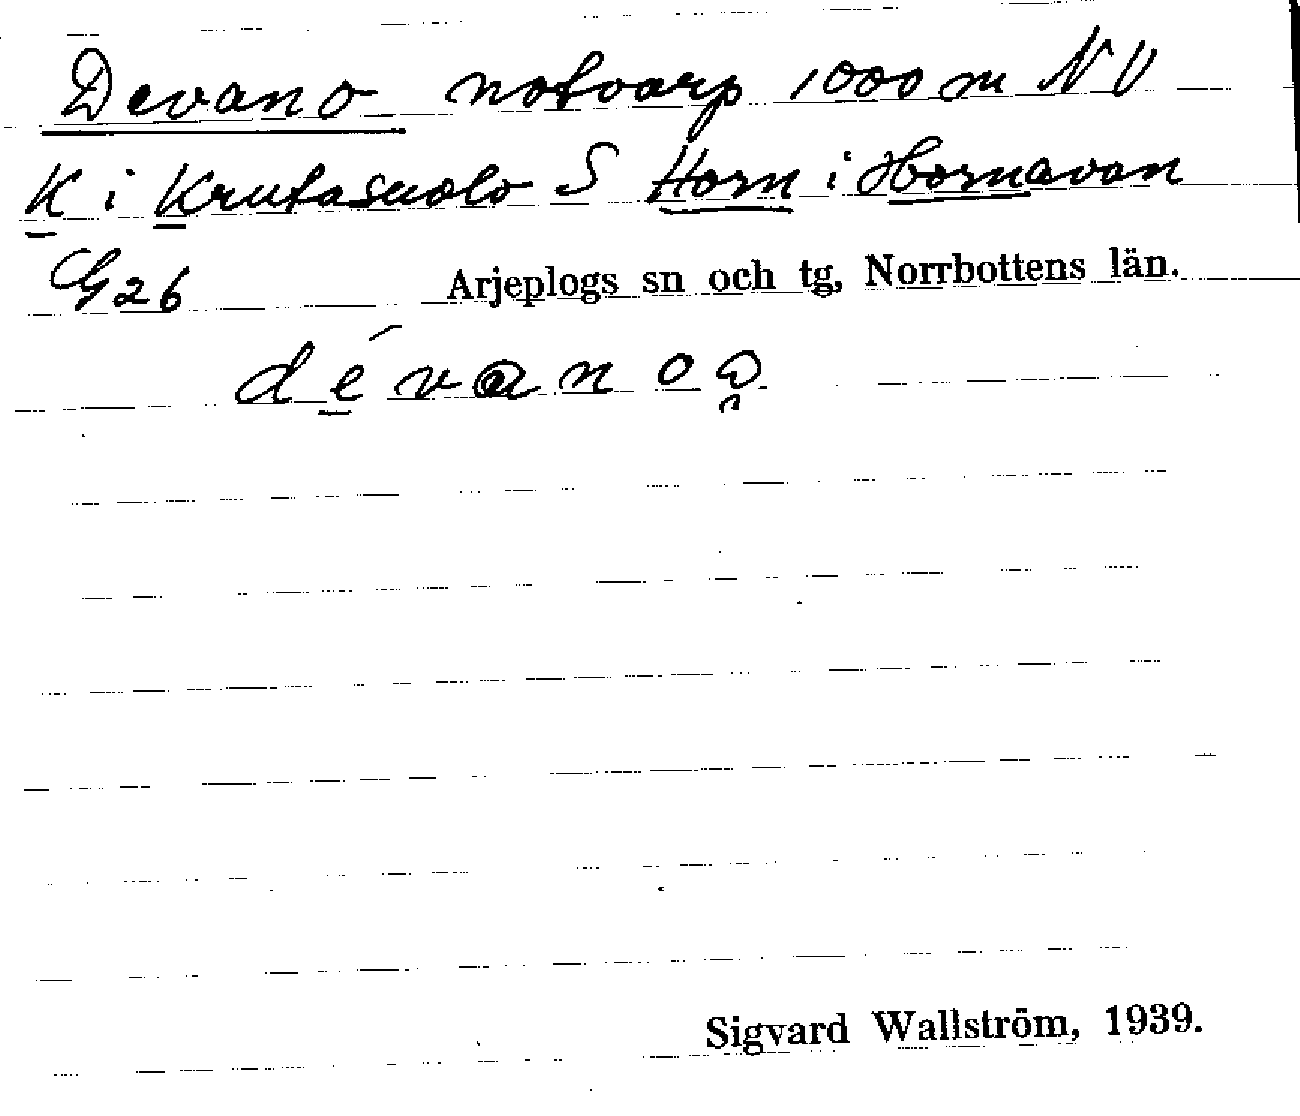 Devano notvarp 1000 m NV
K i Krutasuolo S Horn i Hornavan
G 26 Arjeplogs sn och tg, Norrbottens län.
dévanoo̯
Sigvard Wallström, 1939.